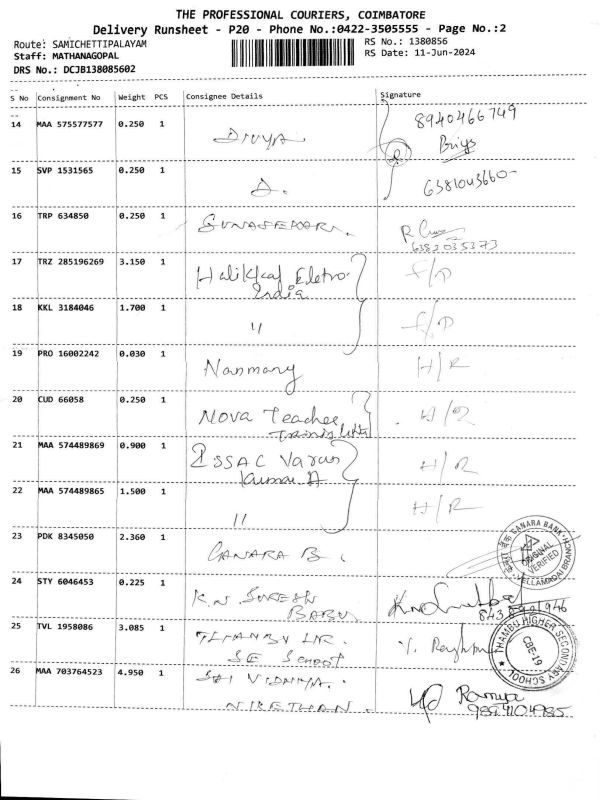 THE PROFESSIONAL COURIERS, COIMBATORE
Delivery Runsheet - P20 - Phone No.:0422-3505555 - Page No.:2
Route: SAMICHETTIPALAYAM
RS No.: 1380856
Staff: MATHANAGOPAL
RS Date: 11-Jun-2024
DRS No.: DCJB138085602
S No Consignment No Weight PCS Consignee Details Signature
14 MAA 575577577 0.250 1 DIVYA. 8940466749
15 SVP 1531565 0.250 1 A.
16 TRP 634850 0.250 1 GUNASEKARN. R
17 TRZ 285196269 3.150 1 India
18 KKL 3184046 1.700 1 "
19 PRO 16002242 0.030 1 Nanmany H/R
20 CUD 66058 0.250 1 Nova Teacher H/R
21 MAA 574489869 0.900 1 ISSAC Varun H/R
Kumar A
22 MAA 574489865 1.500 1 " H/R
23 PDK 8345050 2.360 1 CANARA B. CANARA BANK ORIGINAL VERIFIED
24 STY 6046453 0.225 1 K.N. SURESH
BABU
25 TVL 1958086 3.085 1 THAMBU HR.
SE School
THAMBU HIGHER SECONDARY SCHOOL CBE-19
26 MAA 703764523 4.950 1 SAI VIDHYA. Ramya
NIKETHAN.